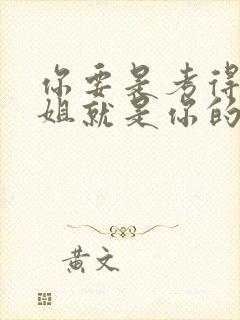 你要是考得
姐就是你的
黄文